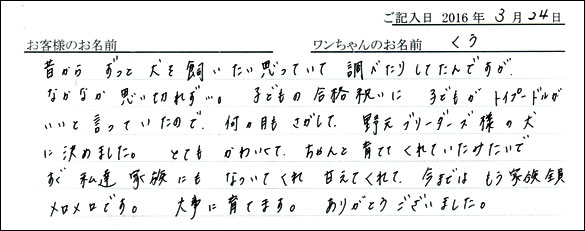 ご記入日 2016年 3月24日
お客様のお名前 ワンちゃんのお名前 くう
昔から ずっと 犬を 飼いたい思っていて 調べたりしてたんですが、
なかなか 思い切れず…。 子どもの 合格祝いに 子どもが トイプードルが
いいと言っていたので、何ヵ月も さがして、野元ブリーダーズ様の犬
に 決めました。 とても かわいくて、ちゃんと 育ててくれていたみたいで
すぐ 私達 家族にも なついてくれ 甘えてくれて、今では もう 家族全員
メロメロです。 大事に育てます。 ありがとうございました。